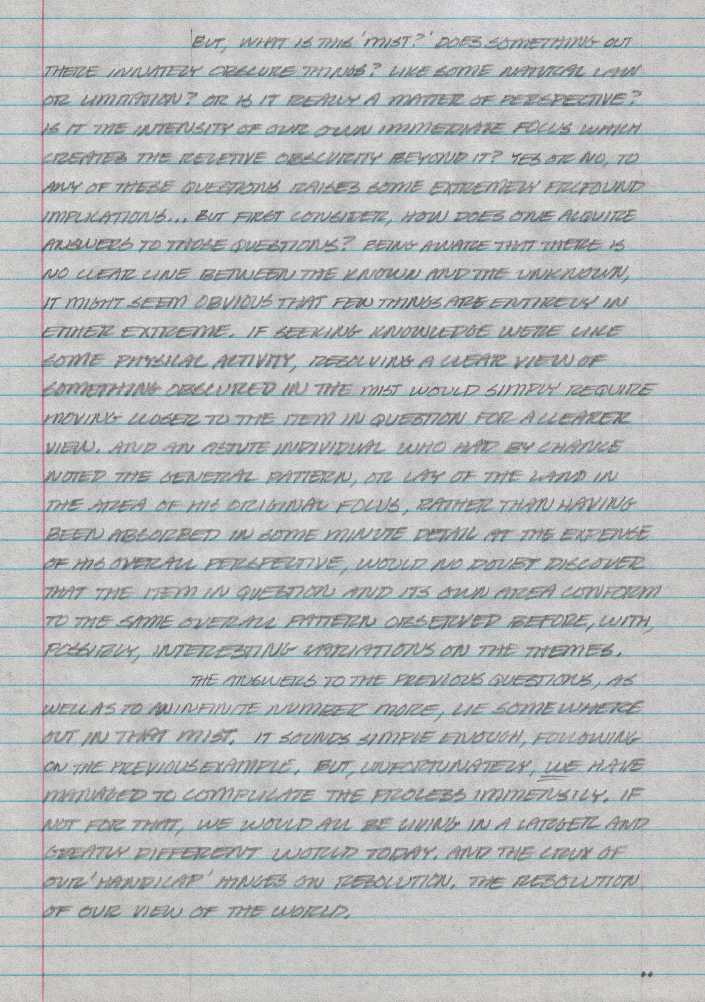 BUT, WHAT IS THIS 'MIST?' DOES SOMETHING OUT
THERE INNATELY OBSCURE THINGS? LIKE SOME NATURAL LAW
OR LIMITATION? OR IS IT REALLY A MATTER OF PERSPECTIVE?
IS IT THE INTENSITY OF OUR OWN IMMEDIATE FOCUS WHICH
CREATES THE RELETIVE OBSCURITY BEYOND IT? YES OR NO, TO
ANY OF THESE QUESTIONS RAISES SOME EXTREMELY PROFOUND
IMPLICATIONS... BUT FIRST CONSIDER, HOW DOES ONE ACQUIRE
ANSWERS TO THOSE QUESTIONS? BEING AWARE THAT THERE IS
NO CLEAR LINE BETWEEN THE KNOWN AND THE UNKNOWN,
IT MIGHT SEEM OBVIOUS THAT FEW THINGS ARE ENTIRELY IN
EITHER EXTREME. IF SEEKING KNOWLEDGE WERE LIKE
SOME PHYSICAL ACTIVITY, RESOLVING A CLEAR VIEW OF
SOMETHING OBSCURED IN THE MIST WOULD SIMPLY REQUIRE
MOVING CLOSER TO THE ITEM IN QUESTION FOR A CLEARER
VIEW. AND AN ASTUTE INDIVIDUAL WHO HAD BY CHANCE
NOTED THE GENERAL PATTERN, OR LAY OF THE LAND IN
THE AREA OF HIS ORIGINAL FOCUS, RATHER THAN HAVING
BEEN ABSORBED IN SOME MINUTE DETAIL AT THE EXPENSE
OF HIS OVERALL PERSPECTIVE, WOULD NO DOUBT DISCOVER
THAT THE ITEM IN QUESTION AND ITS OWN AREA CONFORM
TO THE SAME OVERALL PATTERN OBSERVED BEFORE, WITH,
POSSIBLY, INTERESTING VARIATIONS ON THE THEMES.
THE ANSWERS TO THE PREVIOUS QUESTIONS, AS
WELL AS TO AN INFINITE NUMBER MORE, LIE SOMEWHERE
OUT IN THAT MIST. IT SOUNDS SIMPLE ENOUGH, FOLLOWING
ON THE PREVIOUS EXAMPLE. BUT, UNFORTUNATELY, WE HAVE
MANAGED TO COMPLICATE THE PROCESS IMMENSILY. IF
NOT FOR THAT, WE WOULD ALL BE LIVING IN A LARGER AND
GREATLY DIFFERENT WORLD TODAY. AND THE CRUX OF
OUR 'HANDICAP' HINGES ON RESOLUTION. THE RESOLUTION
OF OUR VIEW OF THE WORLD.